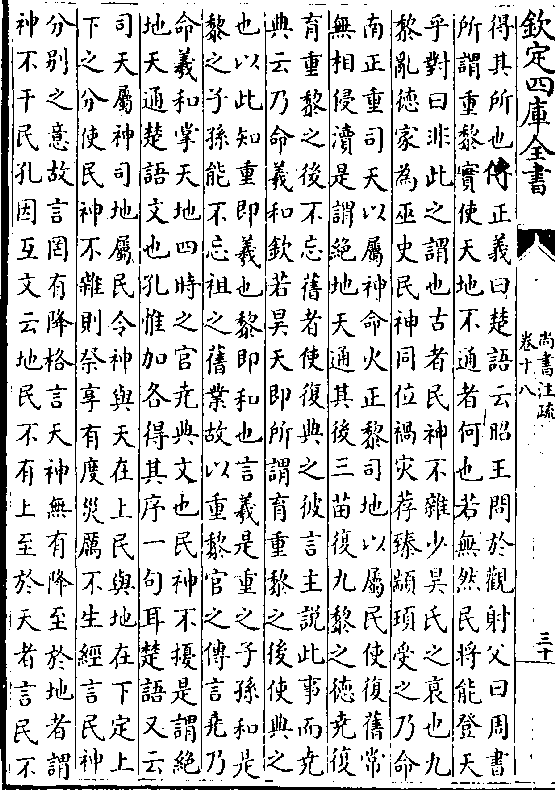 欽定四庫全書
尚書注疏
卷十八
三十
得其所也傳正義曰楚語云昭王問於觀射父曰周書
所謂重黎實使天地不通者何也若無然民將能登天
乎對曰非此之謂也古者民神不雜少昊氏之衰也九
黎亂德家為巫史民神同位禍灾荐臻顓頊受之乃命
南正重司天以屬神命火正黎司地以屬民使復舊常
無相侵瀆是謂絕地天通其後三苗復九黎之德堯復
育重黎之後不忘舊者使復典之彼言主說此事而堯
典云乃命羲和欽若昊天即所謂育重黎之後使典之
也以此知重即羲也黎即和也言羲是重之子孫和是
黎之子孫能不忘祖之舊業故以重黎官之傳言堯乃
命羲和掌天地四時之官堯典文也民神不擾是謂絕
地天通楚語文也孔惟加各得其序一句耳楚語又云
司天屬神司地屬民令神與天在上民與地在下定上
下之分使民神不雜則祭享有度災厲不生經言民神
分别之意故言罔有降格言天神無有降至於地者謂
神不干民孔因互文云地民不有上至於天者言民不